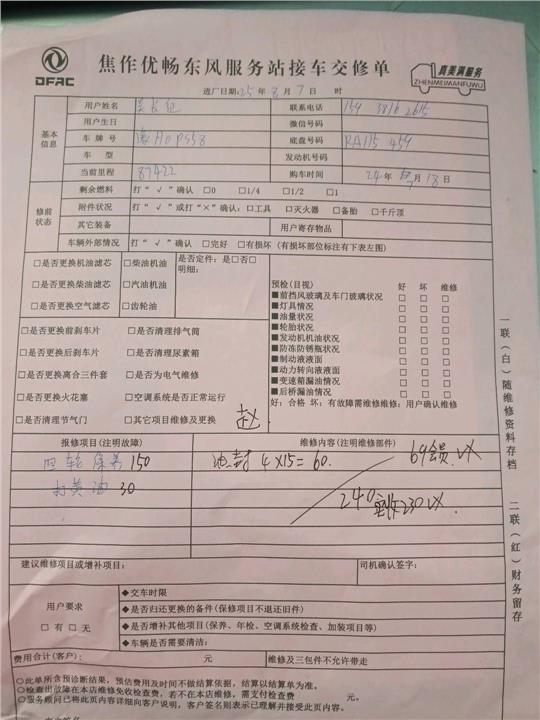 DFAC
焦作优畅东风服务站接车交修单
真美满服务
ZHENMEIMANFUWU
进厂日期:25年8月7日 时
基本信息
用户姓名 联系电话 159 3816 2615
用户生日 微信号码
车牌号 豫H0PS58 底盘号码 RA115 459
车型 发动机号码
当前里程 87422 购车时间 24年 月18日
修前状态
剩余燃料 打“√”确认 □0 □1/4 □1/2 □1
附件状况 打“√”或打“×”确认:□工具 □灭火器 □备胎 □千斤顶
其它装备 用户寄存物品
车辆外部情况 打“√”确认 □完好 □有损坏(有损坏部位标注有下表左图)
□是否更换机油滤芯 □柴油机油 是否定件:是□否□
明细:
□是否更换柴油滤芯 □汽油机油
□是否更换空气滤芯 □齿轮油
□是否更换前刹车片 □是否清理排气筒
□是否更换后刹车片 □是否清理尿素箱
□是否更换离合三件套 □是否为电气维修
□是否更换火花塞 □空调系统是否正常运行
□是否清理节气门 □其它项目维修及更换 赵
预检(目视) 好 坏 维修
■前挡风玻璃及车门玻璃状况 □ □ □
■灯具情况 □ □ □
■油量状况 □ □ □
■轮胎状况 □ □ □
■发动机机油状况 □ □ □
■防冻防锈瓶状况 □ □ □
■制动液液面 □ □ □
■动力转向液液面 □ □ □
■变速箱漏油情况 □ □ □
■后桥漏油情况 □ □ □
好:合格 坏:有故障需维修维修:用户确认维修
报修项目(注明故障) 维修内容(注明维修部件)
四轮保养 150 油封 4×15=60. 69会员.VX
打黄油 30
240 实收230VX.
建议维修项目或增补项目: 司机确认签字:
用户要求
□有 □无
◆交车时限
◆是否归还更换的备件(保修项目不退还旧件)
◆是否增补其他项目(保养、年检、空调系统检查、加装项目等)
◆车辆是否需要清洁:
费用合计(客户): 元 维修及三包件不允许带走
○此单所含预诊断结果,预估费用及时间不做结算依据,结算以结算单为准。
○检查出故障在本店维修免收检查费,若不在本店维修,需支付检查费 元。
○服务顾问已将此页内容详细向客户说明,客户签名则表示已理解并接受此页内容。
一联(白)随维修资料存档
二联(红)财务留存